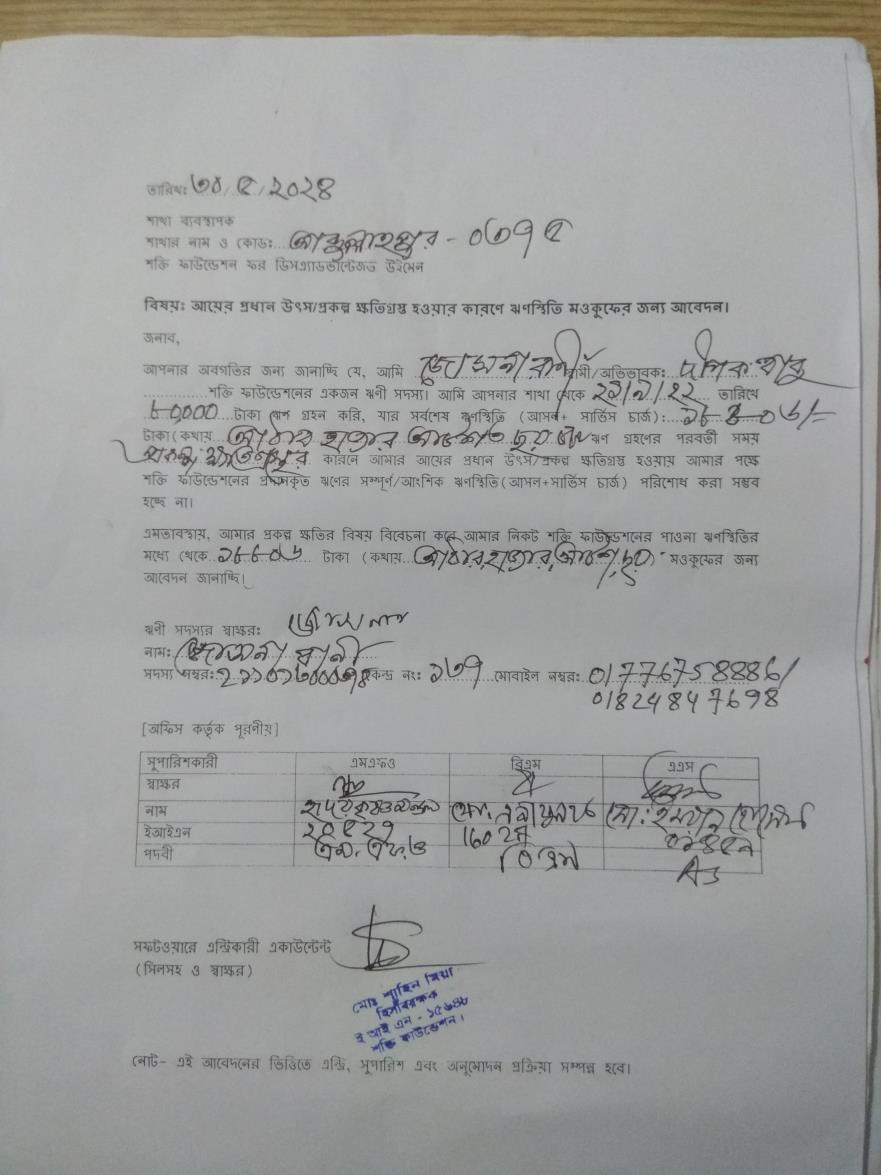 তারিখঃ ৩০/৫/২০২৪
শাখা ব্যবস্থাপক
শাখার নাম ও কোডঃ - ০৩৭৫
শক্তি ফাউন্ডেশন ফর ডিসএ্যাডভান্টেজড উইমেন
বিষয়ঃ আয়ের প্রধান উৎস/প্রকল্প ক্ষতিগ্রস্থ হওয়ার কারণে ঋণস্থিতি মওকুফের জন্য আবেদন।
জনাব,
আপনার অবগতির জন্য জানাচ্ছি যে, আমি স্বামী/অভিভাবকঃ
শক্তি ফাউন্ডেশনের একজন ঋণী সদস্য। আমি আপনার শাখা থেকে তারিখে
৮০,০০০ টাকা ঋণ গ্রহন করি, যার সর্বশেষ ঋণস্থিতি (আসল+ সার্ভিস চার্জ)ঃ ১৮৮০৬/=
টাকা(কথায় আঠার হাজার আটশত ছয় ঋণ গ্রহণের পরবর্তী সময়
কারনে আমার আয়ের প্রধান উৎস/প্রকল্প ক্ষতিগ্রস্ত হওয়ায় আমার পক্ষে
শক্তি ফাউন্ডেশনের ঋণের সম্পূর্ণ/আংশিক ঋণস্থিতি(আসল+সার্ভিস চার্জ) পরিশোধ করা সম্ভব
হচ্ছে না।
এমতাবস্থায়, আমার প্রকল্প ক্ষতির বিষয় বিবেচনা করে আমার নিকট শক্তি ফাউন্ডেশনের পাওনা ঋণস্থিতির
মধ্যে থেকে ১৮৮০৬ টাকা (কথায় আঠার হাজার আটশ ছয়) মওকুফের জন্য
আবেদন জানাচ্ছি।
ঋণী সদস্যর স্বাক্ষরঃ
নামঃ রানী
সদস্য নম্বরঃ কেন্দ্র নংঃ ১৬৭ মোবাইল নম্বরঃ 01776758886/
01824847698
[অফিস কর্তৃক পূরণীয়]
সুপারিশকারী এমএফও বিএম এএস
স্বাক্ষর
নাম মোঃ মোঃ ইমরান হোসেন
ইআইএন
পদবী এম.এফ.ও বিএম AS
সফটওয়ারে এন্ট্রিকারী একাউন্টেন্ট
(সিলসহ ও স্বাক্ষর)
মোঃ শাহিন মিয়া
হিসাবরক্ষক
ই আই এন - ১৫৬৪৮
শক্তি ফাউন্ডেশন।
নোট- এই আবেদনের ভিত্তিতে এন্ট্রি, সুপারিশ এবং অনুমোদন প্রক্রিয়া সম্পন্ন হবে।